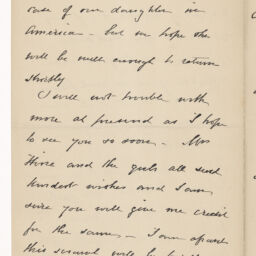 case of our daughter in
America - but we hope she
will be well enough to return
shortly
I will not trouble with
more at present as I hope
to see you so soon - Mrs
and the girls all send
kindest wishes and I am
sure you will give me credit
for the same - I am afraid
this scrawl will be